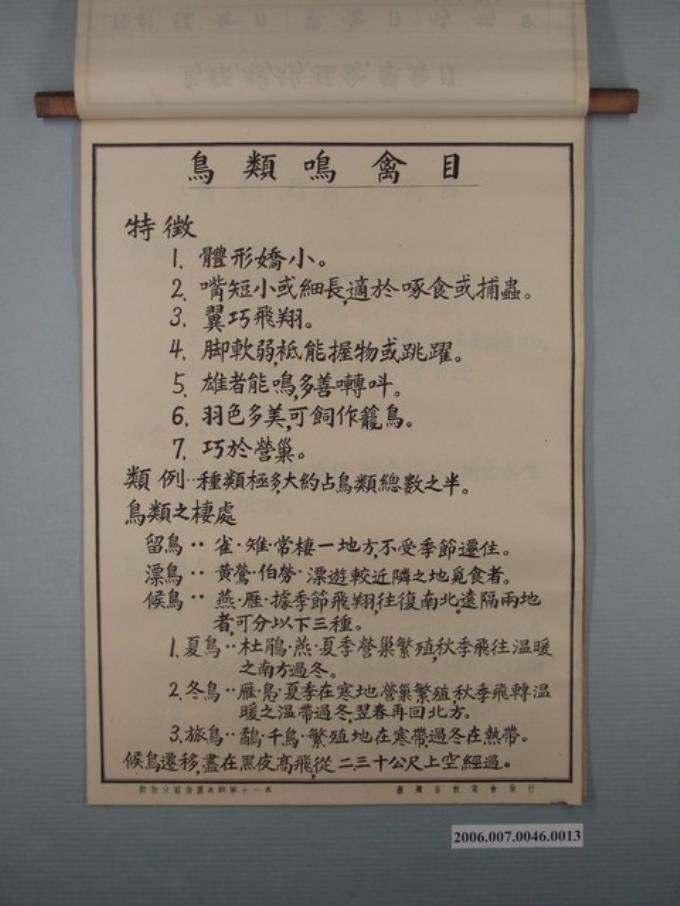 鳥類鳴禽目
特徵
1. 體形嬌小。
2. 嘴短小或細長,適於啄食或捕蟲。
3. 翼巧飛翔。
4. 脚軟弱,祗能握物或跳躍。
5. 雄者能鳴,多善囀叫。
6. 羽色多美,可飼作籠鳥。
7. 巧於營巢。
類例‥種類極多,大約占鳥類總數之半。
鳥類之棲處
留鳥‥雀·雉·常棲一地方,不受季節遷住。
漂鳥‥黃鶯·伯勞·漂遊較近隣之地覓食者。
候鳥‥燕·雁·據季節飛翔,往復南北。遠隔兩地
者,可分以下三種。
1. 夏鳥‥杜鵑·燕·夏季營巢繁殖,秋季飛往溫暖
之南方過冬。
2. 冬鳥‥雁·鳧·夏季在寒地營巢繁殖,秋季飛轉溫
暖之溫帶過冬,翌春再回北方。
3. 旅鳥‥鷸·千鳥·繁殖地在寒帶,過冬在熱帶。
候鳥遷移,盡在黑夜高飛,從二三十公尺上空經過。
臺灣省教育會發行
2006.007.0046.0013